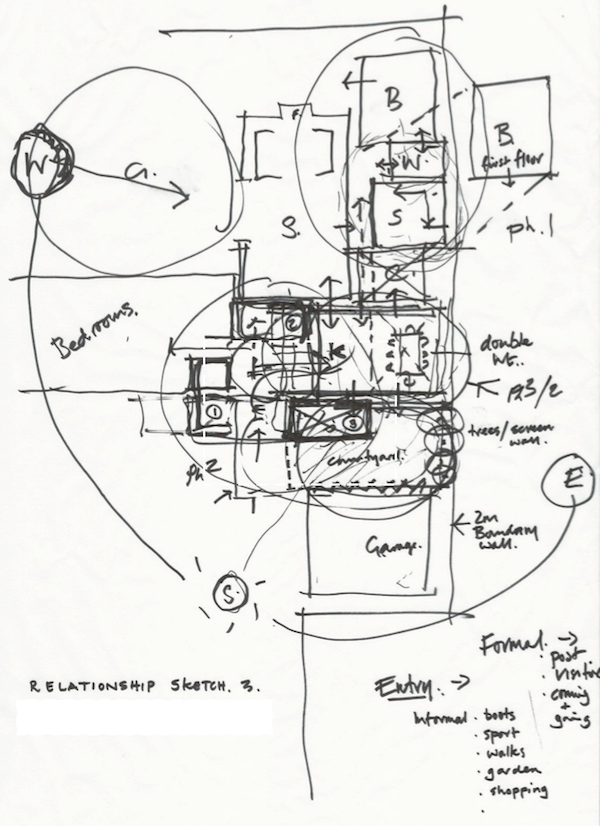 B
W
G.
W.
B.
first floor
S
S.
ph.1
Bedrooms.
2
K
double
ht..
1
3
trees/screen
wall.
ph2
courtyard.
E
2m
Boundary
wall.
Garage.
S.
Formal. →
· post
· visitors
· coming
+
going
RELATIONSHIP SKETCH. 3.
Entry. →
Informal · boots
· sport
· walks
· garden
· shopping
·